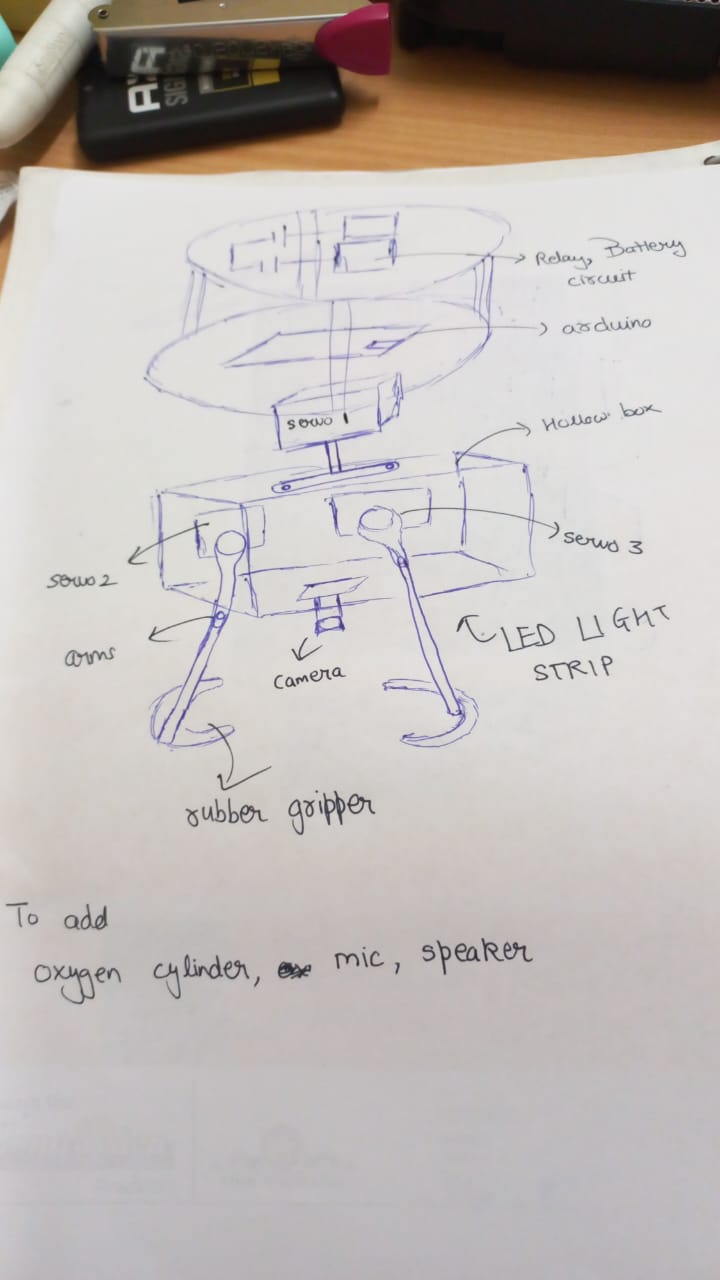 AXA
SIG
Relay, Battery
circuit
arduino
servo 1
Hollow box
servo 3
servo 2
arms
camera
LED LIGHT
STRIP
rubber gripper
To add
oxygen cylinder, mic, speaker